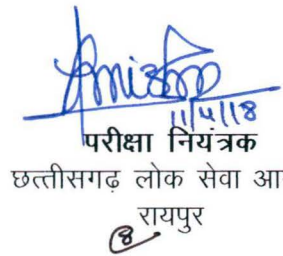 11/4/18
परीक्षा नियंत्रक
छत्तीसगढ़ लोक सेवा आ
रायपुर
8